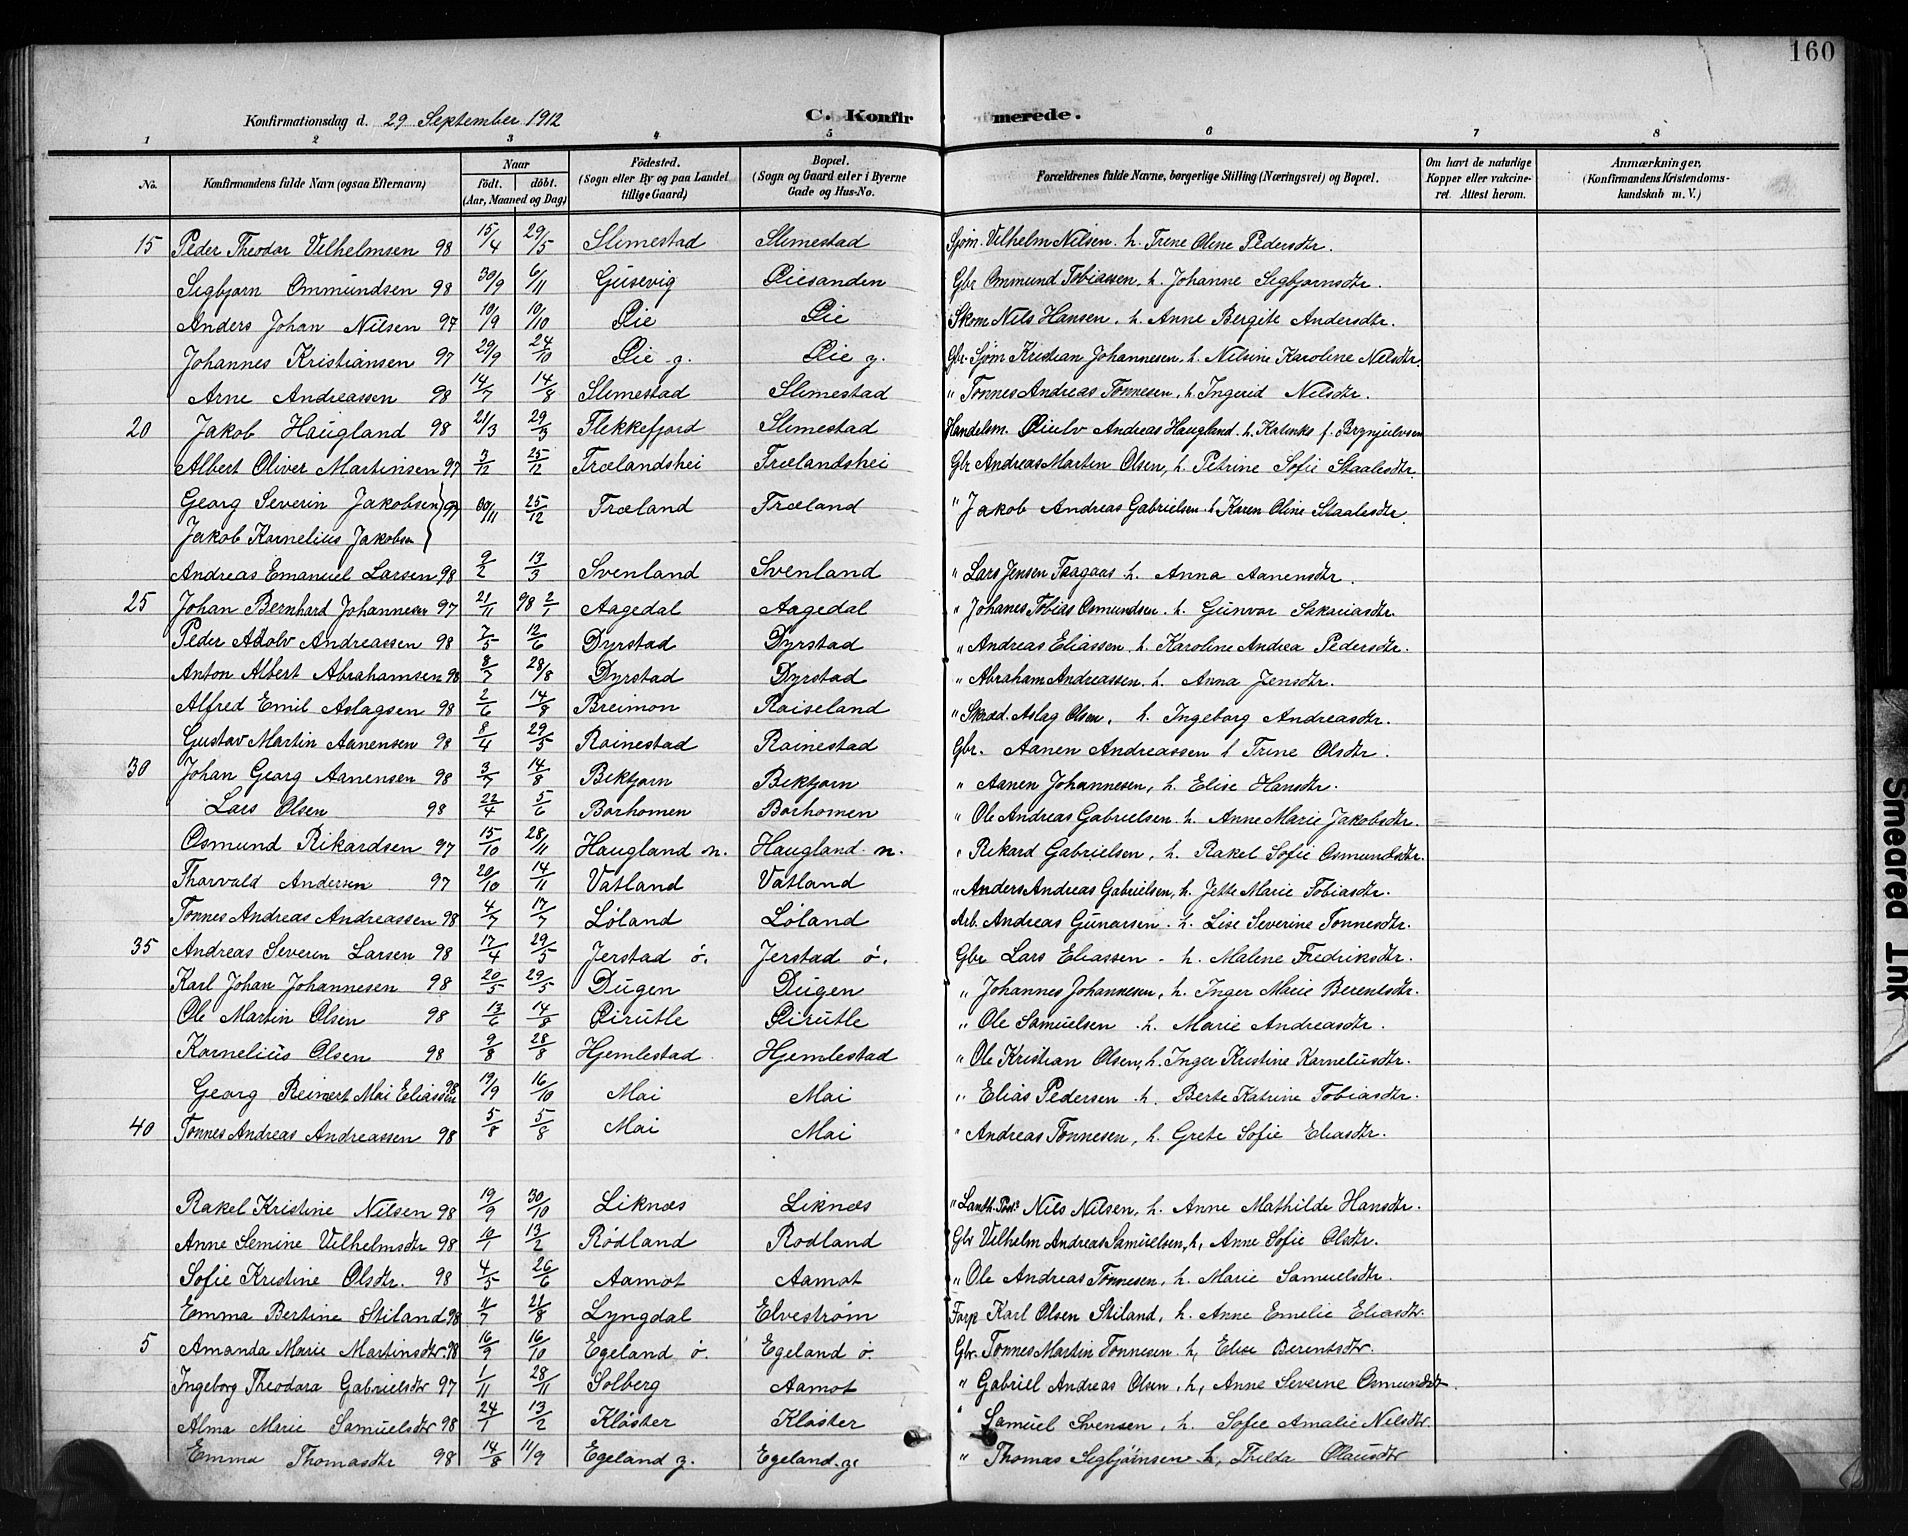 160
Konfirmationsdag d. 29 September 1912 C. Konfirmerede.
1 2 3 4 5 6 7 8
No. Konfirmandens fulde Navn (ogsaa Efternavn) Naar født. døbt. (Aar, Maaned og Dag) Fødested. (Sogn eller By og paa Landet tillige Gaard) Bopæl. (Sogn og Gaard eller i Byerne Gade og Hus-No. Forældrenes fulde Navne, borgerlige Stilling (Næringsvei) og Bopæl. Om havt de naturlige Kopper eller vakcineret. Attest herom. Anmærkninger, (Konfirmandens Kristendomskundskab m. V.)
15 Peder Theodor Vilhelmsen 98 15/4 29/5 Slimestad Slimestad Sjøm. Vilhelm Nilsen h. Trine Oline Pedersdtr.
Sigbjorn Ommundsen 98 30/9 6/11 Gusevig Øiesanden Gbr Ommund Tobiassen, h. Johanne Sigbjornsdtr.
Anders Johan Nilsen 97 10/9 10/10 Øie Øie Skom Nils Hansen, h. Anne Bergite Andersdtr.
Johannes Kristiansen 97 29/9 24/10 Øie g. Øie g. Gbr. Sjøm Kristian Johannesen, h. Nilsine Karoline Nilsdtr.
Arne Andreassen 98 14/7 14/8 Slimestad Slimestad " Tonnes Andreas Tonnesen, h. Ingerid Nilsdtr.
20 Jakob Haugland 98 21/3 29/3 Flekkefjord Slimestad Handelsm. Øiulv Andreas Haugland h. Katinka f. Brynjulvsen
Albert Oliver Martinsen 97 3/12 25/12 Trælandshei Trælandshei Gbr Andreas Martin Olsen, h. Petrine Sofie Staalesdtr.
Georg Severin Jakobsen 97 30/11 25/12 Træland Træland " Jakob Andreas Gabrielsen h Karen Oline Staalesdtr.
Jakob Kornelius Jakobsen
Andreas Emanuel Larsen 98 9/2 13/3 Svenland Svenland " Lars Jensen h. Anna Aanensdtr.
25 Johan Bernhard Johannesen 97 21/11 98 2/1 Aagedal Aagedal " Johanes Tobias Osmundsen h. Gunvor Sakariasdtr.
Peder Adolv Andreassen 98 7/5 12/6 Dyrstad Dyrstad " Andreas Eliassen, h. Karoline Andrea Pedersdtr.
Anton Albert Abrahamsen 98 8/7 28/8 Dyrstad Dyrstad " Abraham Andreassen h. Anna Jensdtr.
Alfred Emil Aslagsen 98 2/6 14/8 Breimon Roiseland " Skræd. Aslag Olsen, h. Ingeborg Andreasdtr.
Gustav Martin Aanensen 98 8/4 29/5 Roinestad Roinestad Gbr. Aanen Andreassen h Trine Olsdtr.
30 Johan Georg Aanensen 98 3/7 14/8 Birkjorn Birkjorn " Aanen Johannesen, h. Elise Hansdtr.
Lars Olsen 98 22/4 5/6 Borhomen Borhomen " Ole Andreas Gabrielsen h. Anne Marie Jakobsdtr.
Osmund Rikardsen 97 15/10 28/11 Haugland n. Haugland n. " Rikard Gabrielsen, h. Rakel Sofie Osmundsdtr.
Thorvald Andersen 97 20/10 14/11 Vatland Vatland " Anders Andreas Gabrielsen, h. Jette Marie Tobiasdtr.
Tonnes Andreas Andreassen 98 4/7 17/7 Løland Løland Arb. Andreas Gunarsen h. Lise Severine Tonnesdtr.
35 Andreas Severin Larsen 98 17/4 29/5 Jerstad ø. Jerstad ø. Gbr Lars Eliassen - h. Malene Fredriksdtr.
Karl Johan Johannesen 98 20/5 29/5 Dugen Dugen " Johannes Johannesen, h. Inger Marie Berentsdtr.
Ole Martin Olsen 98 13/6 14/8 Øirutle Øirutle " Ole Samuelsen h. Marie Andreasdtr.
Kornelius Olsen 98 9/8 28/8 Hjemlestad Hjemlestad " Ole Kristian Olsen, h. Inger Kristine Korneliusdtr.
Georg Reinert Moi Eliassen 98 19/9 16/10 Moi Moi " Elias Pedersen h. Berte Katrine Tobiasdtr.
40 Tonnes Andreas Andreassen 98 5/8 5/8 Moi Moi " Andreas Tonnesen, h. Grete Sofie Eliasdtr.
Rakel Kristine Nilsen 98 19/9 30/10 Liknæs Liknæs " Nils Nilsen, h. Anne Mathilde Hansdtr.
Anne Semine Vilhelmsdtr 98 10/1 13/2 Rødland Rødland Gbr Vilhelm Andreas Samuelsen, h, Anne Sofie Olsdtr.
Sofie Kristine Olsdtr. 98 4/5 26/6 Aamot Aamot " Ole Andreas Tonnesen, h. Marie Samuelsdtr.
Emma Bertine Stiland 98 11/7 21/8 Lyngdal Elvestrøm Forp Karl Olsen Stiland, h. Anne Emelie Eliasdtr.
5 Amanda Marie Martinsdtr. 98 16/9 16/10 Egeland ø. Egeland ø. Gbr. Tonnes Martin Tonnesen h, Elise Berentsdtr.
Ingeborg Theodora Gabrielsdtr 97 1/11 28/11 Solberg Aamot " Gabriel Andreas Olsen, h, Anne Severne Osmundsdtr.
Alma Marie Samuelsdtr 98 24/1 13/2 Kloster Kloster " Samuel Svensen, h. Sofie Amalie Nilsdtr.
Emma Thomasdtr 98 14/8 11/9 Egeland g. Egeland g. " Thomas Sigbjørnsen h, Thilda Olausdtr
Smeared Ink